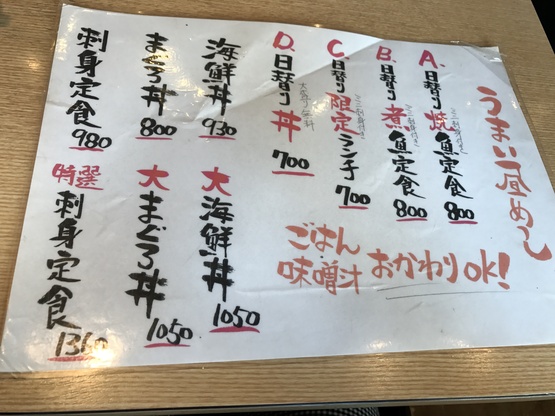 うまい昼めし
A. 日替り焼魚定食 800
B. 日替り煮魚定食 800
C. 日替り限定ランチ 700
D. 日替り丼 700
海鮮丼 930
まぐろ丼 800
刺身定食 980
大海鮮丼 1050
大まぐろ丼 1050
特選刺身定食
ごはん
味噌汁 おかわりOK!